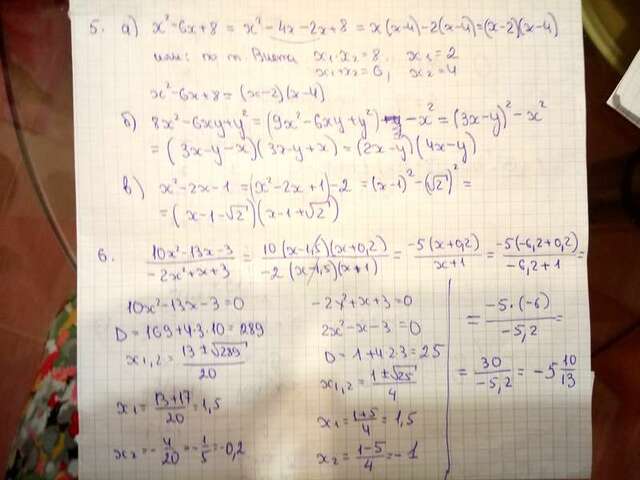 5. а) x²-6x+8 = x²-4x-2x+8 = x(x-4)-2(x-4)=(x-2)(x-4)
или: по т. Виета x₁·x₂=8, x₁=2
x₁+x₂=6, x₂=4
x²-6x+8=(x-2)(x-4)
б) 8x²-6xy+y²=(9x²-6xy+y²)-x²=(3x-y)²-x²
=(3x-y-x)(3x-y+x)=(2x-y)(4x-y)
в) x²-2x-1=(x²-2x+1)-2=(x-1)²-(√2)²=
=(x-1-√2)(x-1+√2)
6. (10x²-13x-3)/(-2x²+x+3) = 10(x-1,5)(x+0,2)/(-2(x-1,5)(x+1)) = -5(x+0,2)/(x+1) = -5(-6,2+0,2)/(-6,2+1) =
10x²-13x-3=0
D=169+4·3·10=289
x₁,₂=(13±√289)/20
x₁=(13+17)/20=1,5
x₂=-4/20=-1/5=-0,2
-2x²+x+3=0
2x²-x-3=0
D=1+4·2·3=25
x₁,₂=(1±√25)/4
x₁=(1+5)/4=1,5
x₂=(1-5)/4=-1
= -5·(-6)/(-5,2) =
= 30/(-5,2) = -5 10/13